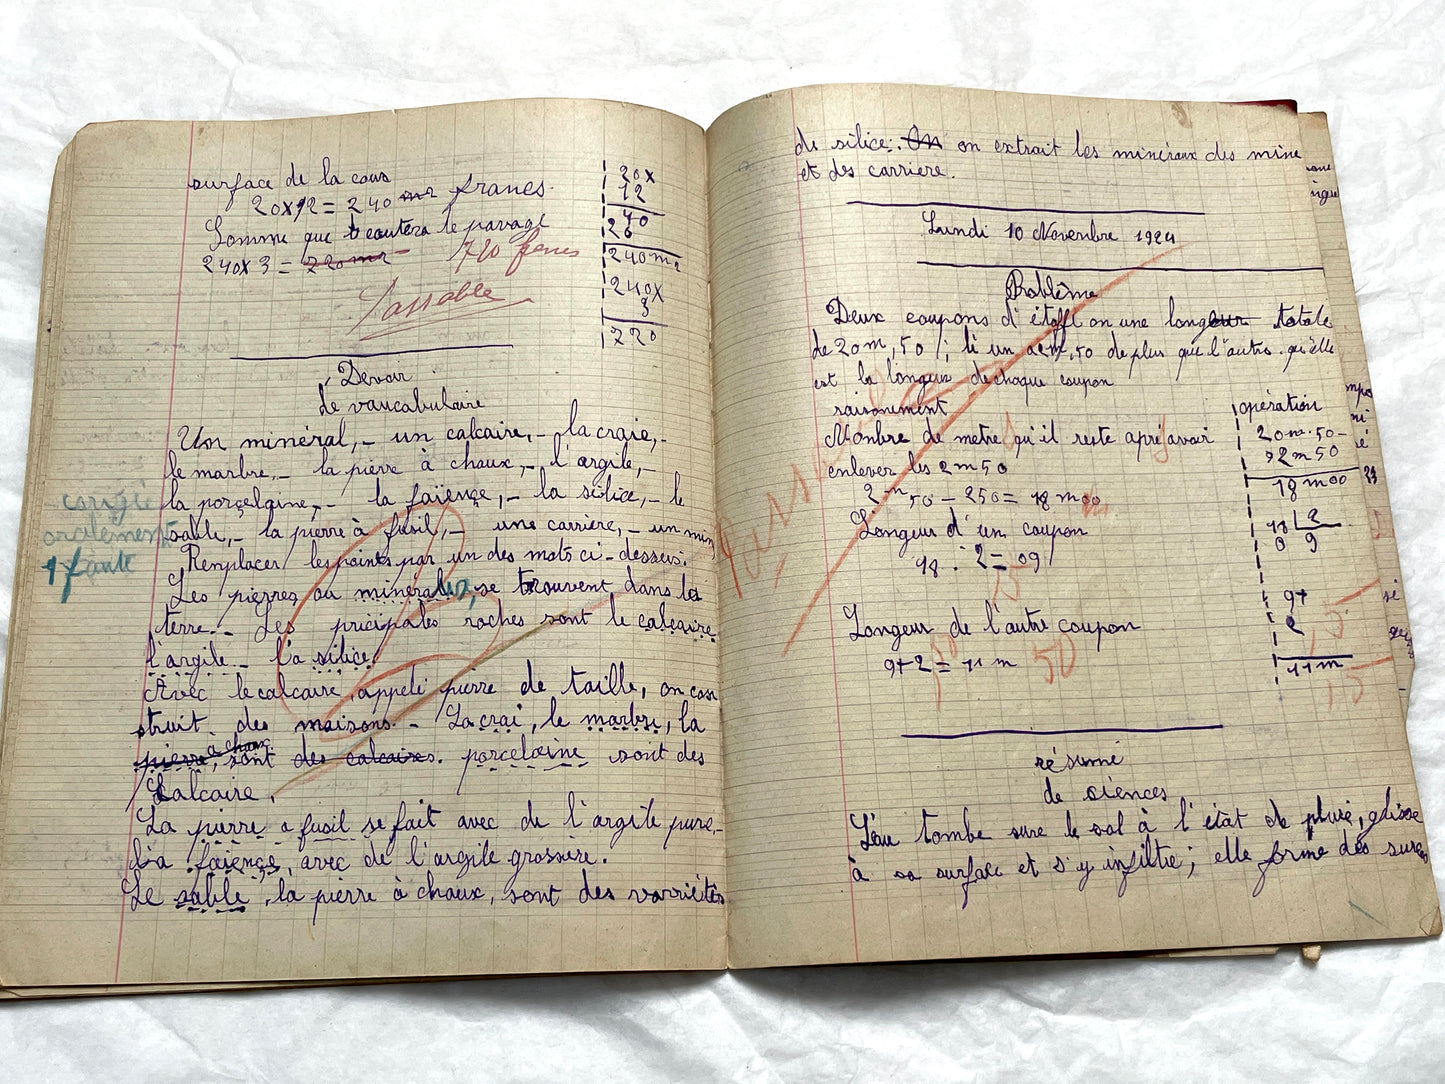 surface de la cour
20x12 = 240 m2 francs.
Somme que coutera le pavage
240x3 = 720 m2 - 720 francs
Passable
20x
12
40
20
240 m2
240x
3
720
Devoir
de vaucabulaire
Un minéral, - un calcaire, - la craie, -
le marbre, - la pierre à chaux, - l'argile, -
la porcelaine, - la faïence, - la silice, - le
sable, - la pierre à fusil, - une carrière, - un mine
Remplacer les points par un des mots ci-dessus.
Les pierres ou minéraux, se trouvent dans les
terre. - Les pricipales roches sont le calcaire
l'argile - la silice.
Avec le calcaire, appelé pierre de taille, on cons
truit des maisons. - La crai, le marbre, la
pierre à chaux, sont des calcaires. porcelaine sont des
Calcaire.
La pierre a fusil se fait avec de l'argile pure, -
La faïence, avec de l'argile grossière.
Le sable, la pierre à chaux, sont des varriétés
corrigé
oralement
1 faute
de silice. On on extrait les minéraux des mine
et des carriere.
Lundi 10 Novembre 1924
Problême
Deux coupons d'étoffe on une longueur totale
de 20m,50 ; si un a 2m,50 de plus que l'autre. qu'elle
est la longeur de chaque coupon
raisonement
Nombre de metre qu'il reste apré avoir
enlever les 2m50
2m50 - 250 = 18 m00
Longeur d'un coupon
18 : 2 = 09
Longeur de l'autre coupon
9+2 = 11 m 50
opération
20m.50-
2m50
18m00
18 2
0 9
9+
2
11m
résumé
de siences
L'eau tombe sure le sol à l'état de pluie, glisse
à sa surface et s'y infiltre ; elle forme des sures